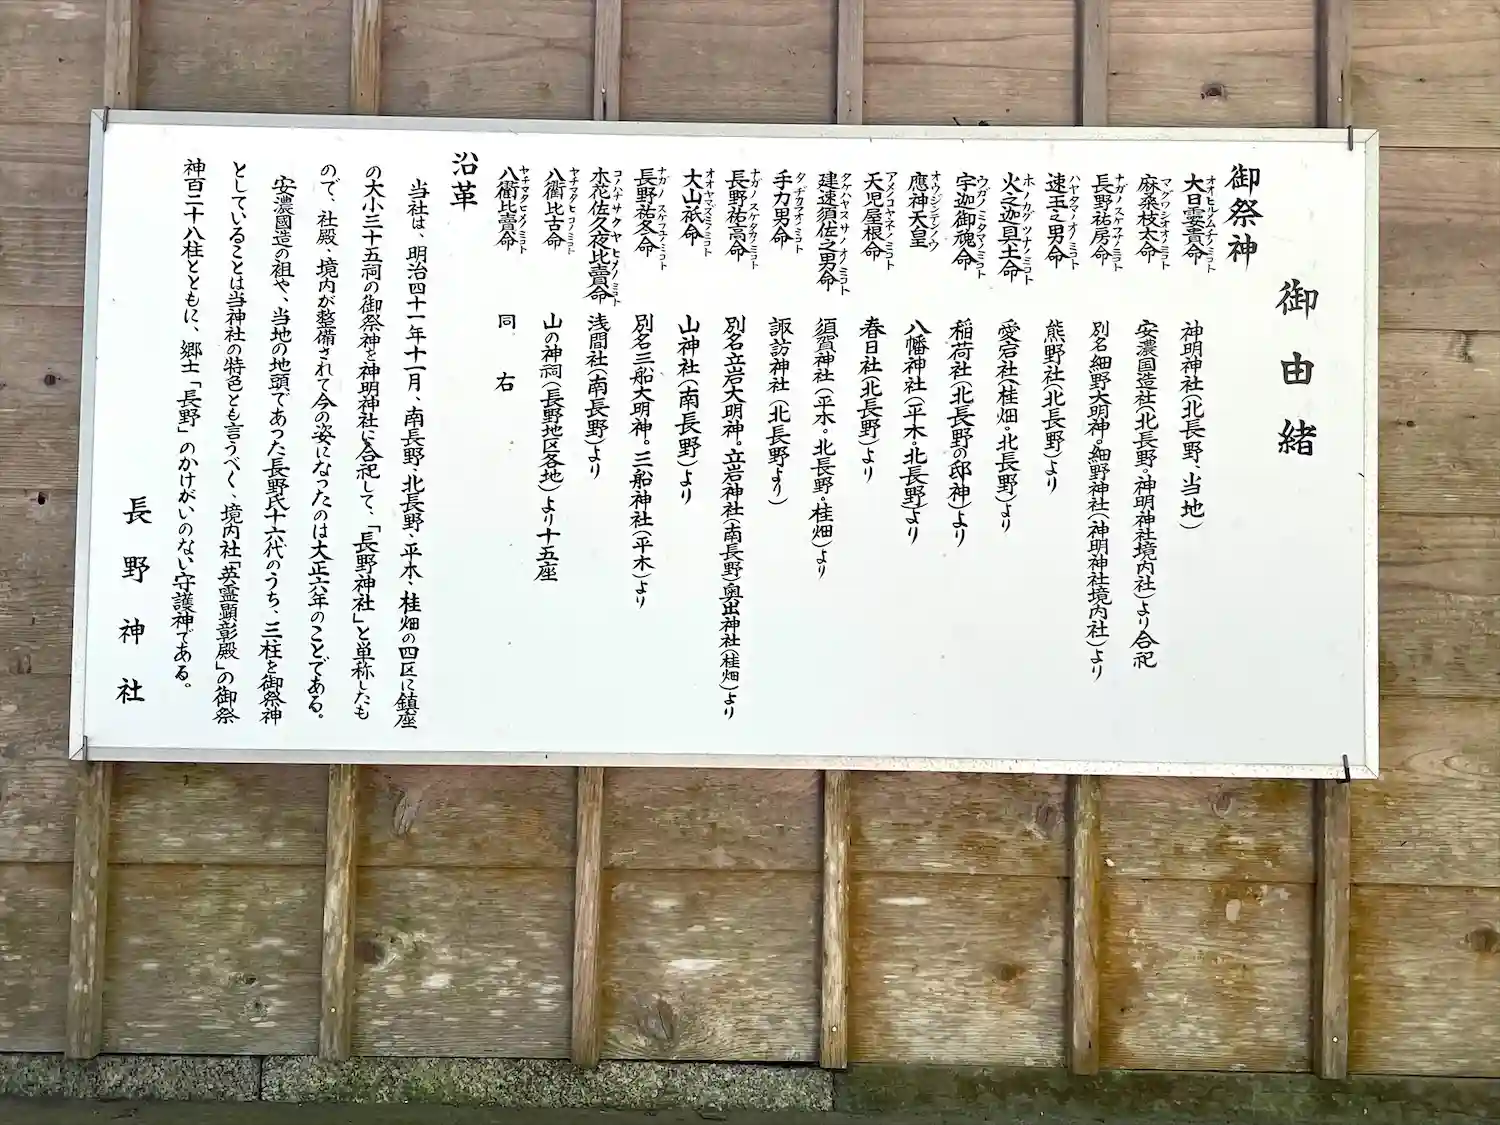 御由緒
御祭神
大日霊貴命 オオヒルムチノミコト 神明神社(北長野、当地)
麻桑枝太命 安濃国造社(北長野。神明神社境内社)より合祀
長野祐房命 ナガノスケフサノミコト 別名細野大明神。細野神社(神明神社境内社)より
速玉之男命 ハヤタマノオノミコト 熊野社(北長野)より
火之迦具土命 ホノカグツチノミコト 愛宕社(桂畑。北長野)より
宇迦御魂命 ウガノミタマノミコト 稲荷社(北長野の邸神)より
應神天皇 オウジンテンノウ 八幡神社(平木。北長野)より
天児屋根命 アメノコヤネノミコト 春日社(北長野)より
建速須佐之男命 タケハヤスサノオノミコト 須賀神社(平木。北長野。桂畑)より
手力男命 タヂカラオノミコト 諏訪神社(北長野より)
長野祐高命 ナガノスケタカノミコト 別名立岩大明神。立岩神社(南長野)奥出神社(桂畑)より
大山祇命 オオヤマズミノミコト 山神社(南長野)より
長野祐冬命 ナガノスケフユノミコト 別名三船大明神。三船神社(平木)より
木花佐久夜比賣命 コノハナサクヤヒメノミコト 浅間社(南長野)より
八衢比古命 ヤチマタヒコノミコト 山の神祠(長野地区各地)より十五座
八衢比賣命 ヤチマタヒメノミコト 同右
沿革
当社は、明治四十一年十一月、南長野、北長野、平木、桂畑の四区に鎮座
の大小三十五祠の御祭神を神明神社に合祀して、「長野神社」と単称したも
ので、社殿、境内が整備されて今の姿になったのは大正六年のことである。
安濃國造の祖や、当地の地頭であった長野氏十六代のうち、三柱を御祭神
としていることは当神社の特色とも言うべく、境内社「英霊顕彰殿」の御祭
神百二十八柱とともに、郷土「長野」のかけがいのない守護神である。
長野神社